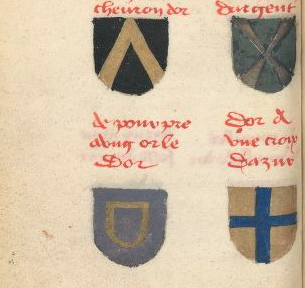 cheuron dor
dargent
de pourpre
a vng orle
Dor
Dor A
vne croix
Dazur